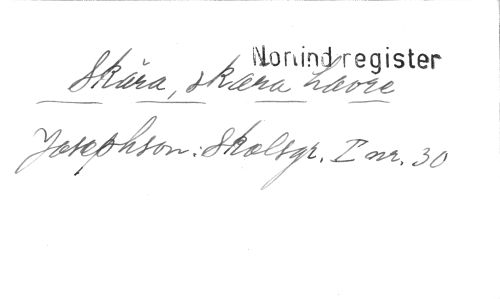 Norrind register
Skära, skæra havre
Josephson: Skolsgr. I nr. 30